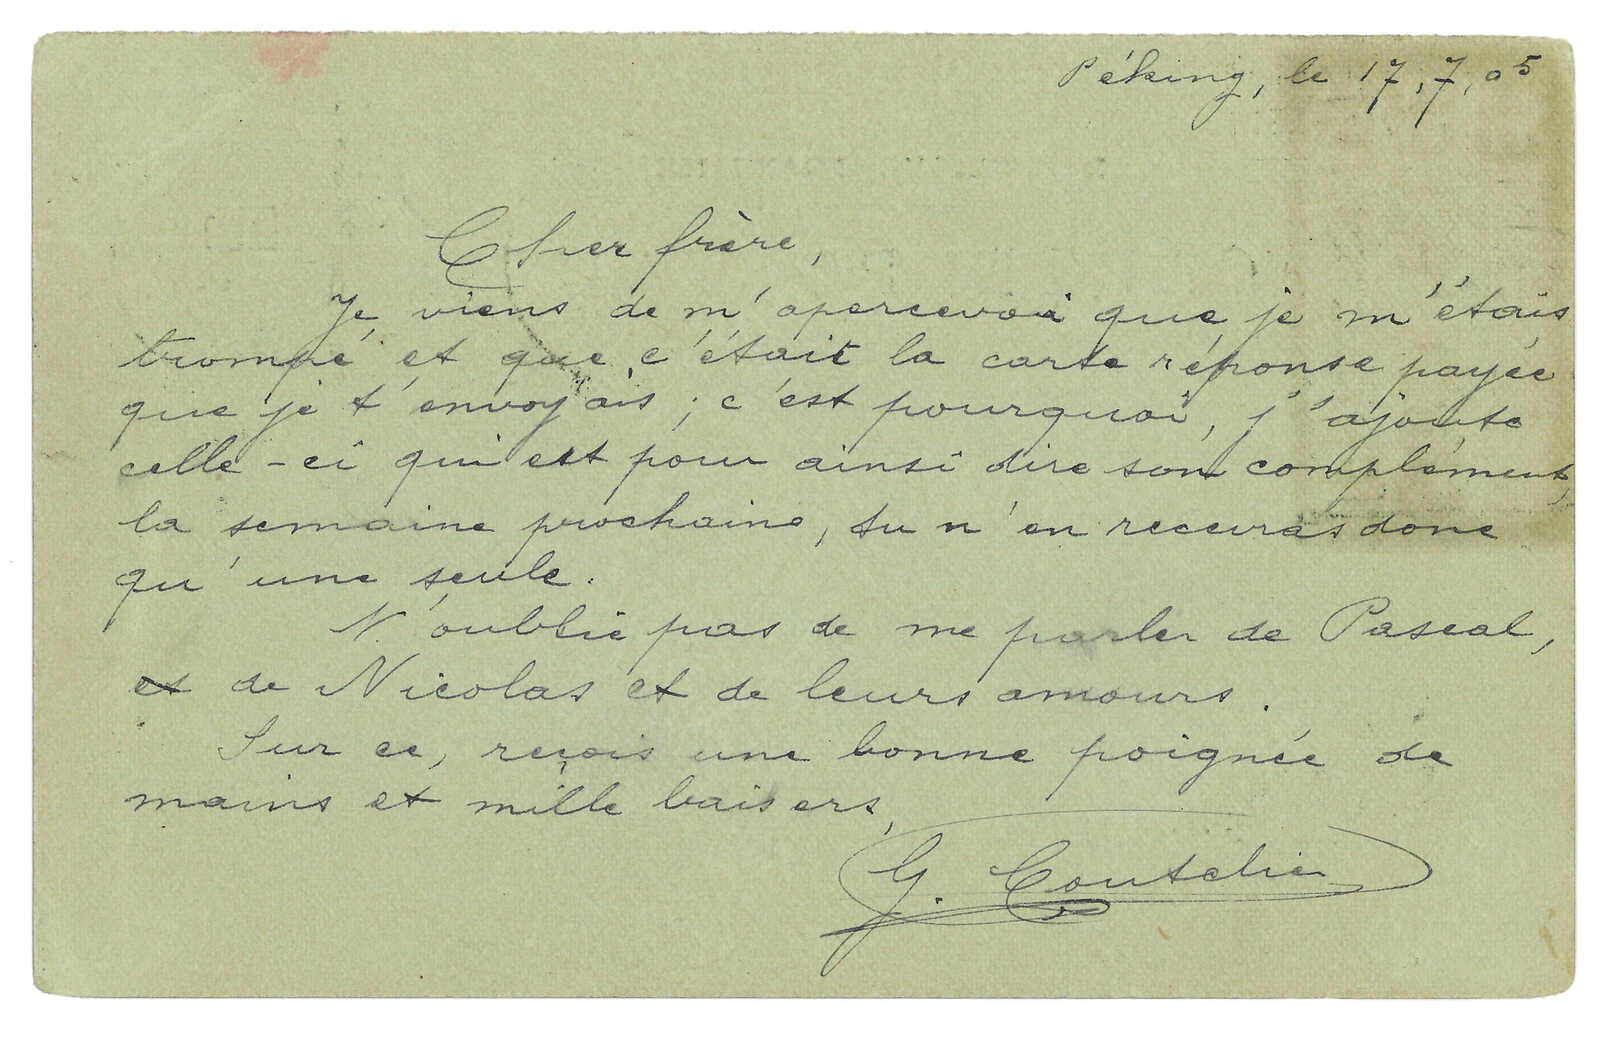 Péking, le 17,7,05
Cher frère,
Je viens de m'apercevoir que je m'étais
trompé et que c'était la carte réponse payée
que je t'envoyais ; c'est pourquoi, j'ajoute
celle-ci qui est pour ainsi dire son complément,
la semaine prochaine, tu n'en recevras donc
qu'une seule.
N'oublie pas de me parler de Pascal,
et de Nicolas et de leurs amours.
Sur ce, reçois une bonne poignée de
mains et mille baisers,
G. Coutelier